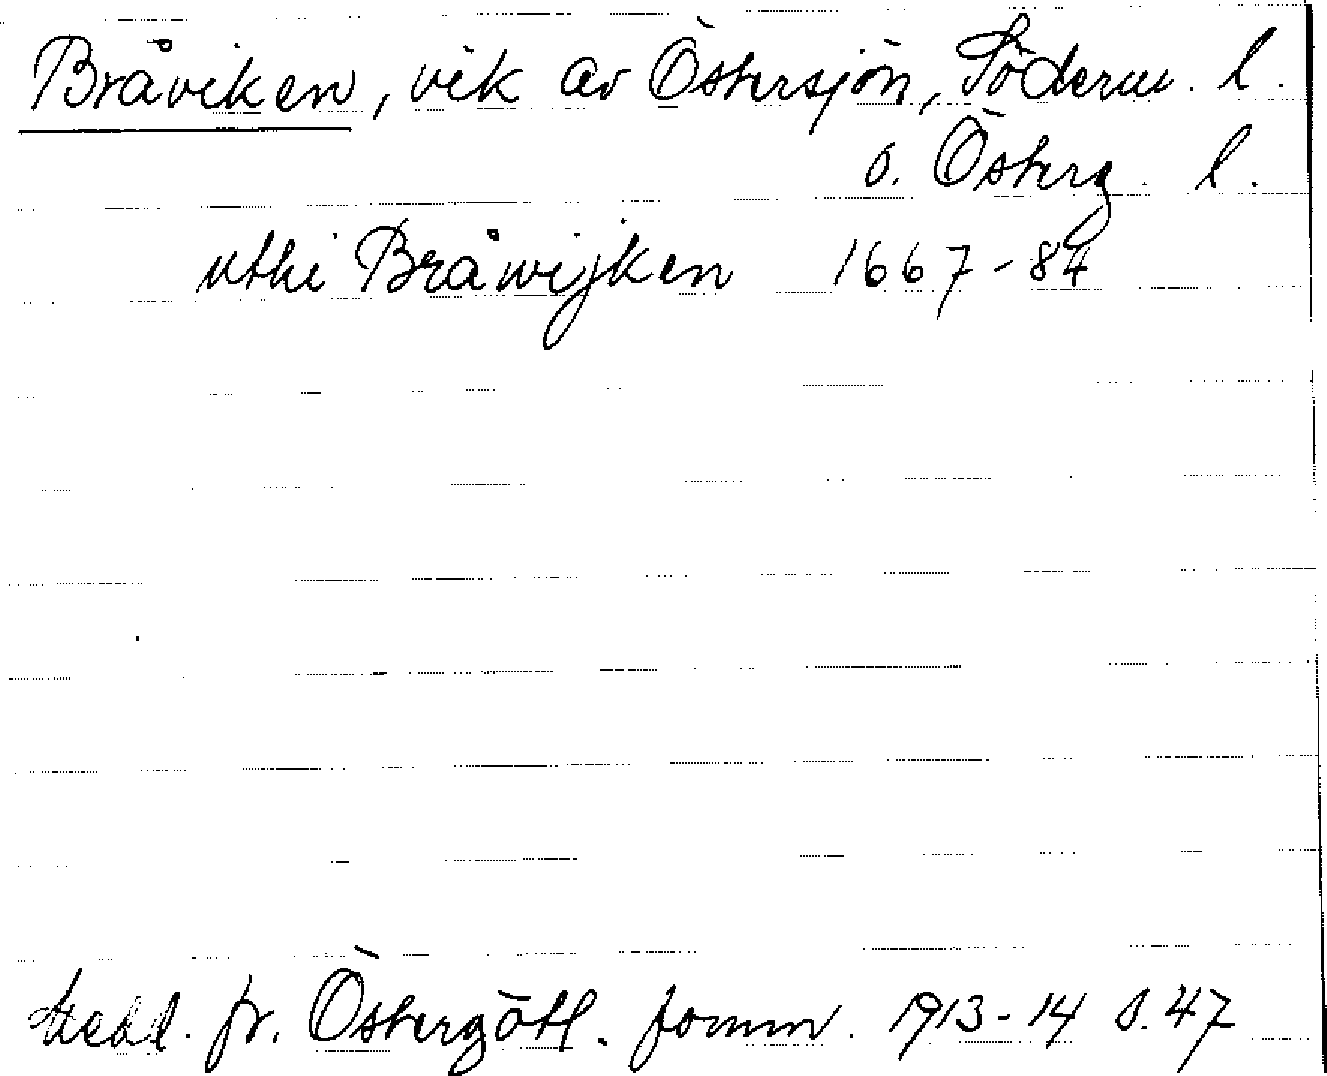 Bråviken, vik av Östersjön, Söderm. l.
o. Österg. l.
uthi Bråwijken 1667-84
Medd. fr. Östergötl. fornm. 1913-14 s. 47